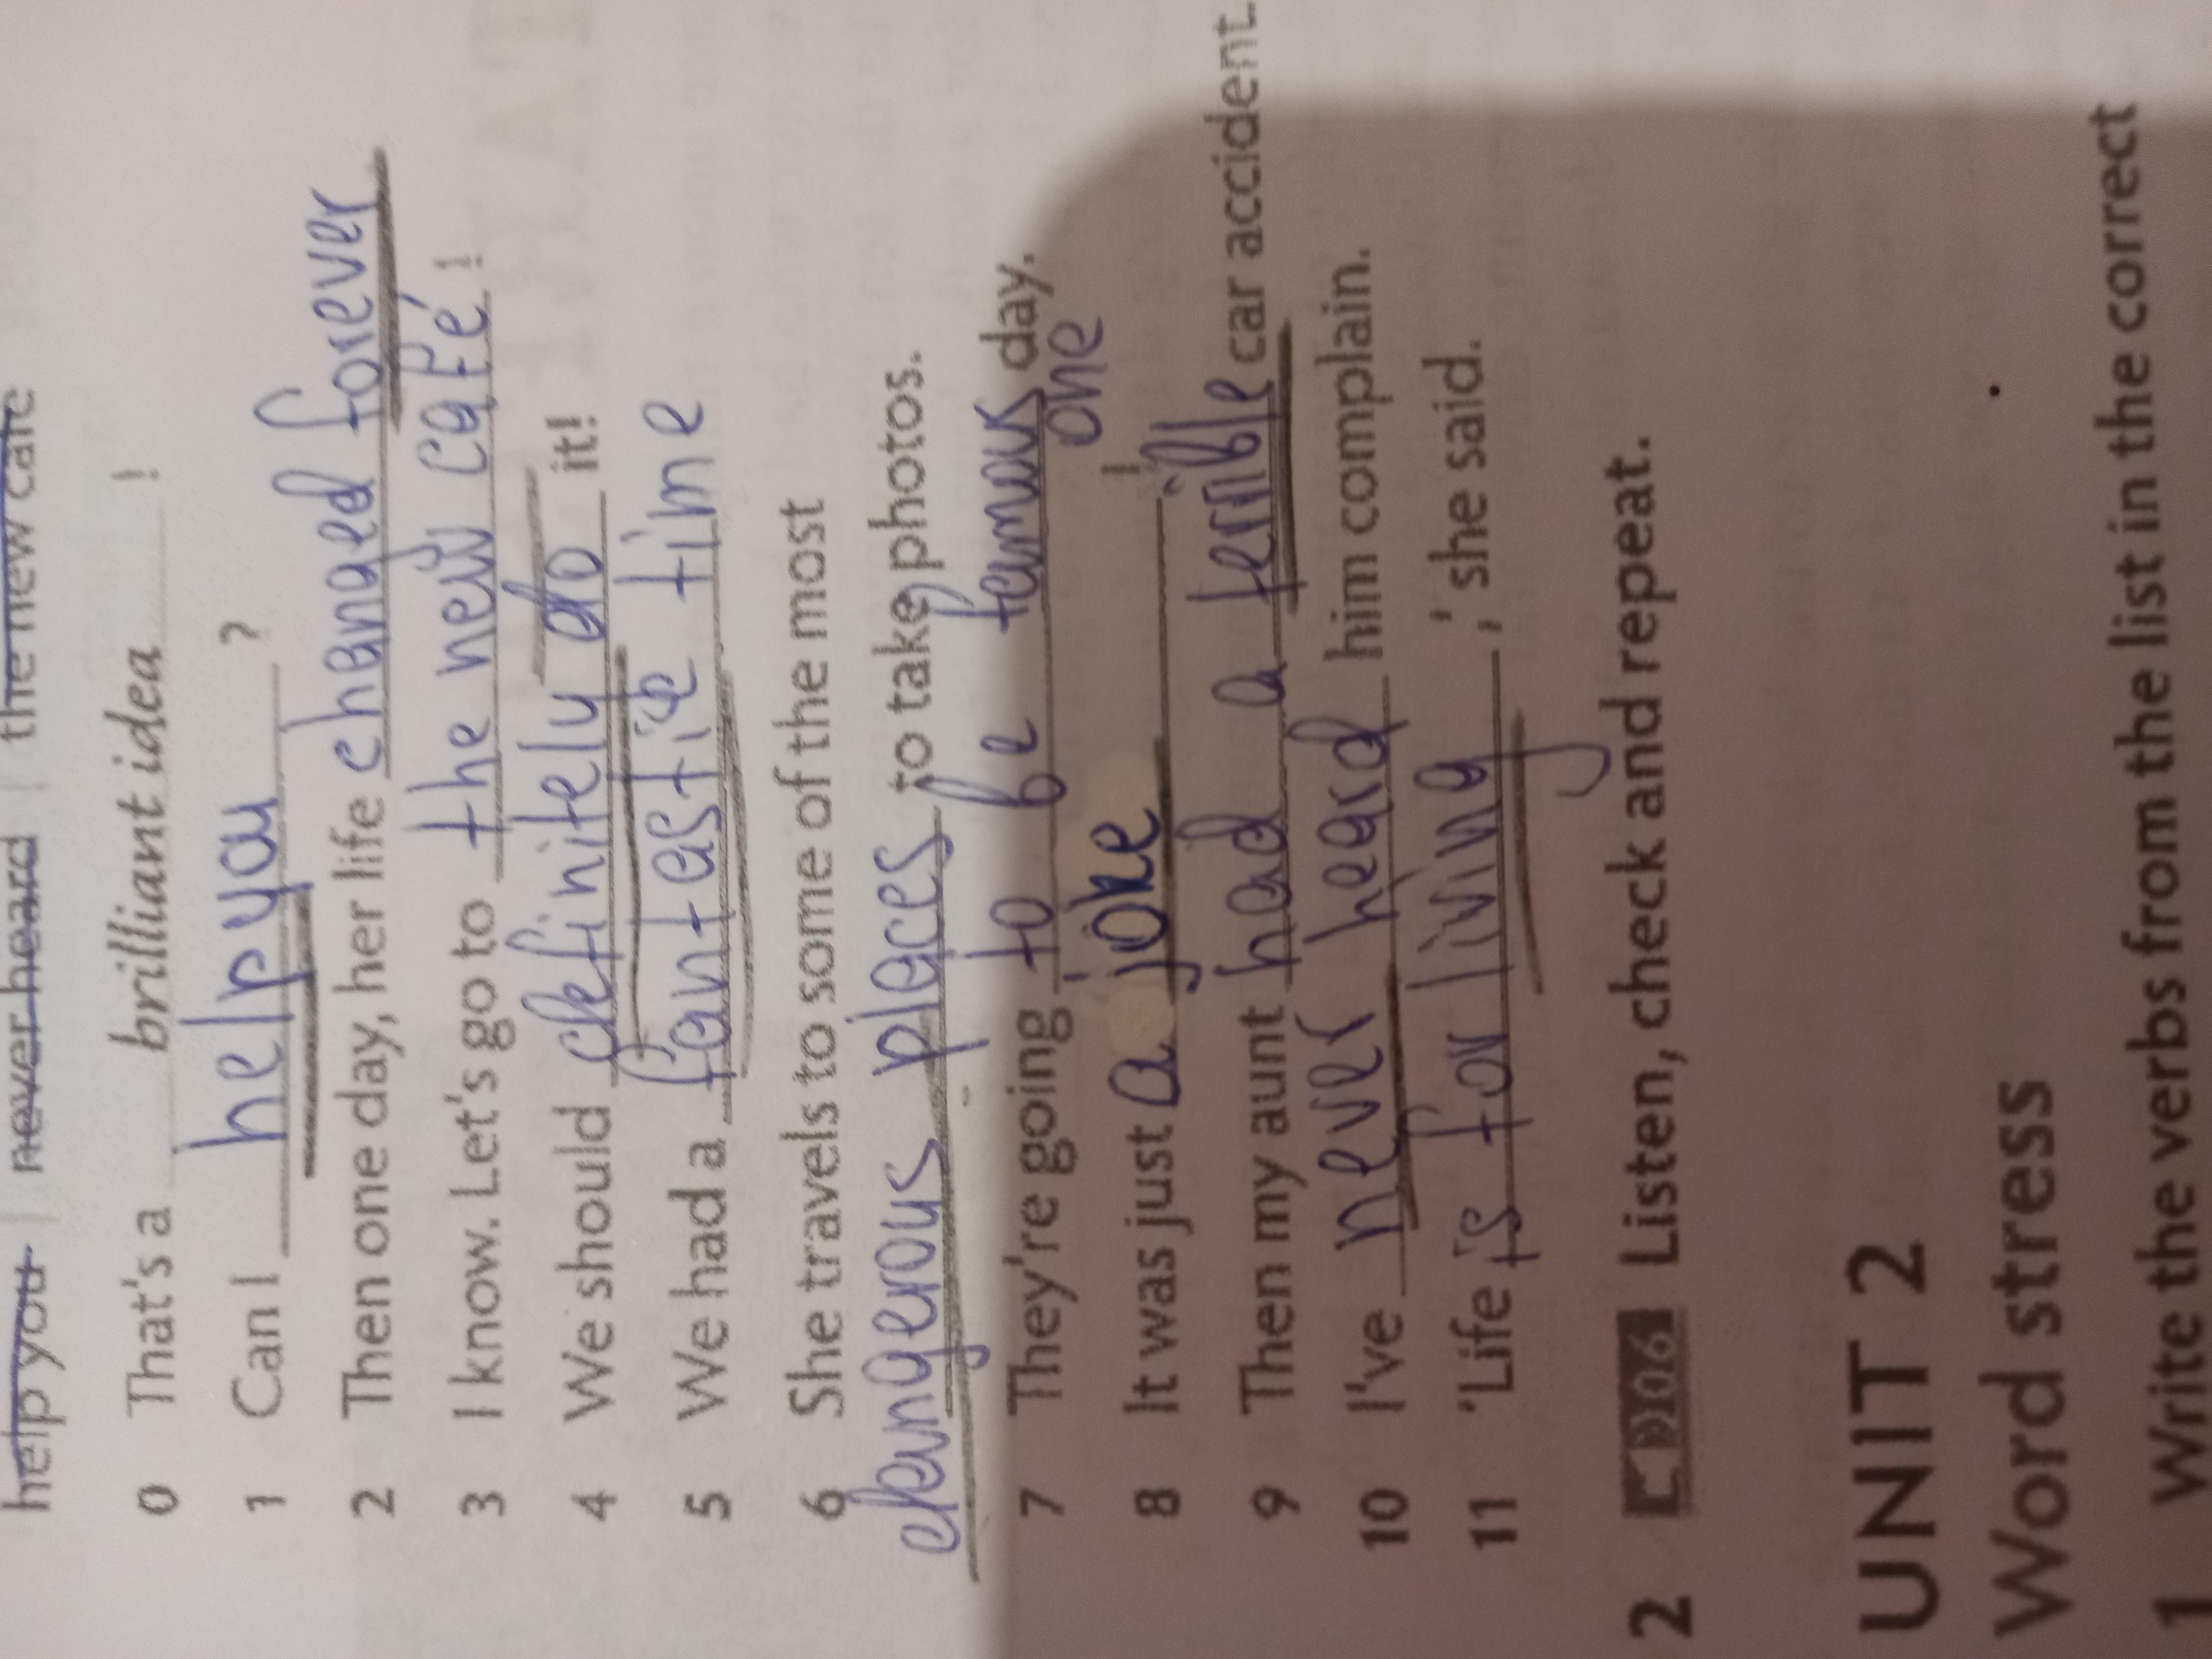 help you | never heard | the new café
0 That's a brilliant idea !
1 Can I help you ?
2 Then one day, her life changed forever
3 I know. Let's go to the new café !
4 We should definitely do it!
5 We had a fantastic time
6 She travels to some of the most
dangerous places to take photos.
7 They're going to be famous day.
one
8 It was just a joke !
9 Then my aunt had a terrible car accident.
10 I've never heard him complain.
11 'Life is for living ,' she said.
2 106 Listen, check and repeat.
UNIT 2
Word stress
1 Write the verbs from the list in the correct